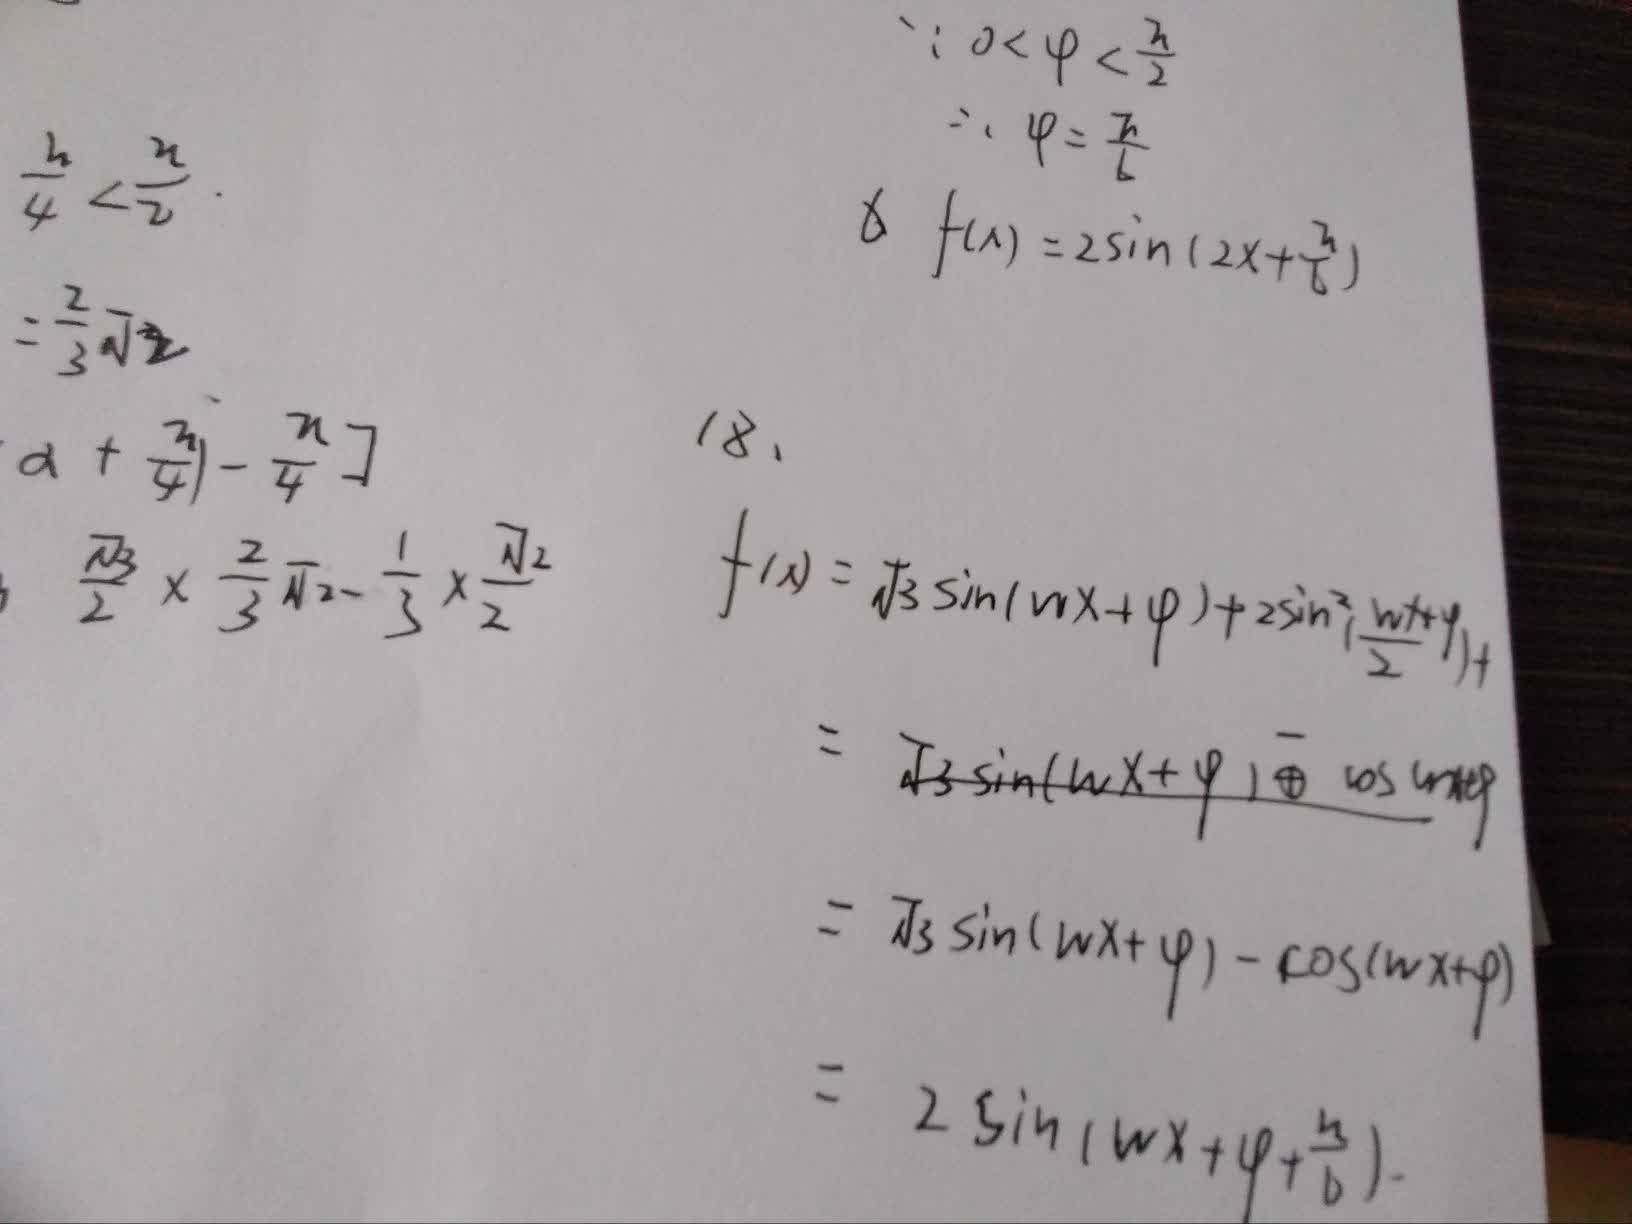 π/4 < π/2 .
= 2/3 √2
α + π/4) - π/4 ]
√3/2 × 2/3 √2 - 1/3 × √2/2
∵ 0 < φ < π/2
∴ φ = π/6
f(x) = 2sin(2x + π/6)
18、
f(x) = √3 sin(wx + φ) + 2sin²(wx+φ/2) +
= √3 sin(wx + φ) - cos wx+φ
= √3 sin(wx + φ) - cos(wx+φ)
= 2 sin(wx + φ + π/6).